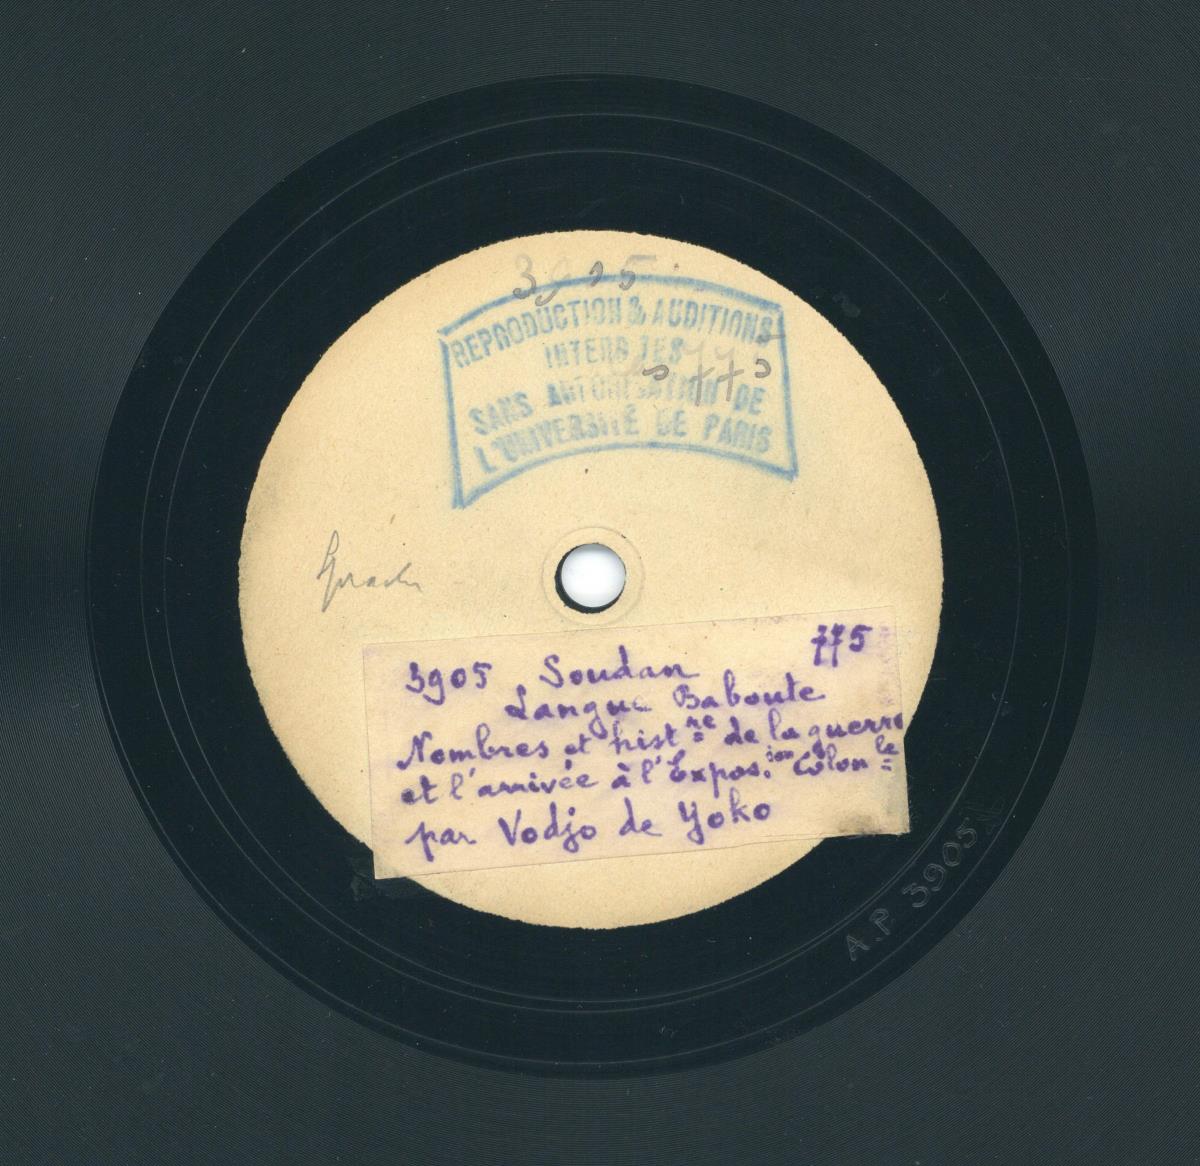 3905
REPRODUCTION & AUDITIONS
INTERDITES
775
SANS AUTORISATION DE
L'UNIVERSITÉ DE PARIS
Sprache
3905 Soudan 775
Langue Baboute
Nombres et hist.re de la guerre
et l'arrivée à l'Expos.ion Colon.le
par Vodjo de Yoko
A.P. 3905